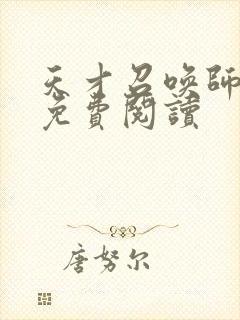 天才召喚師
免費閱讀
唐努尔